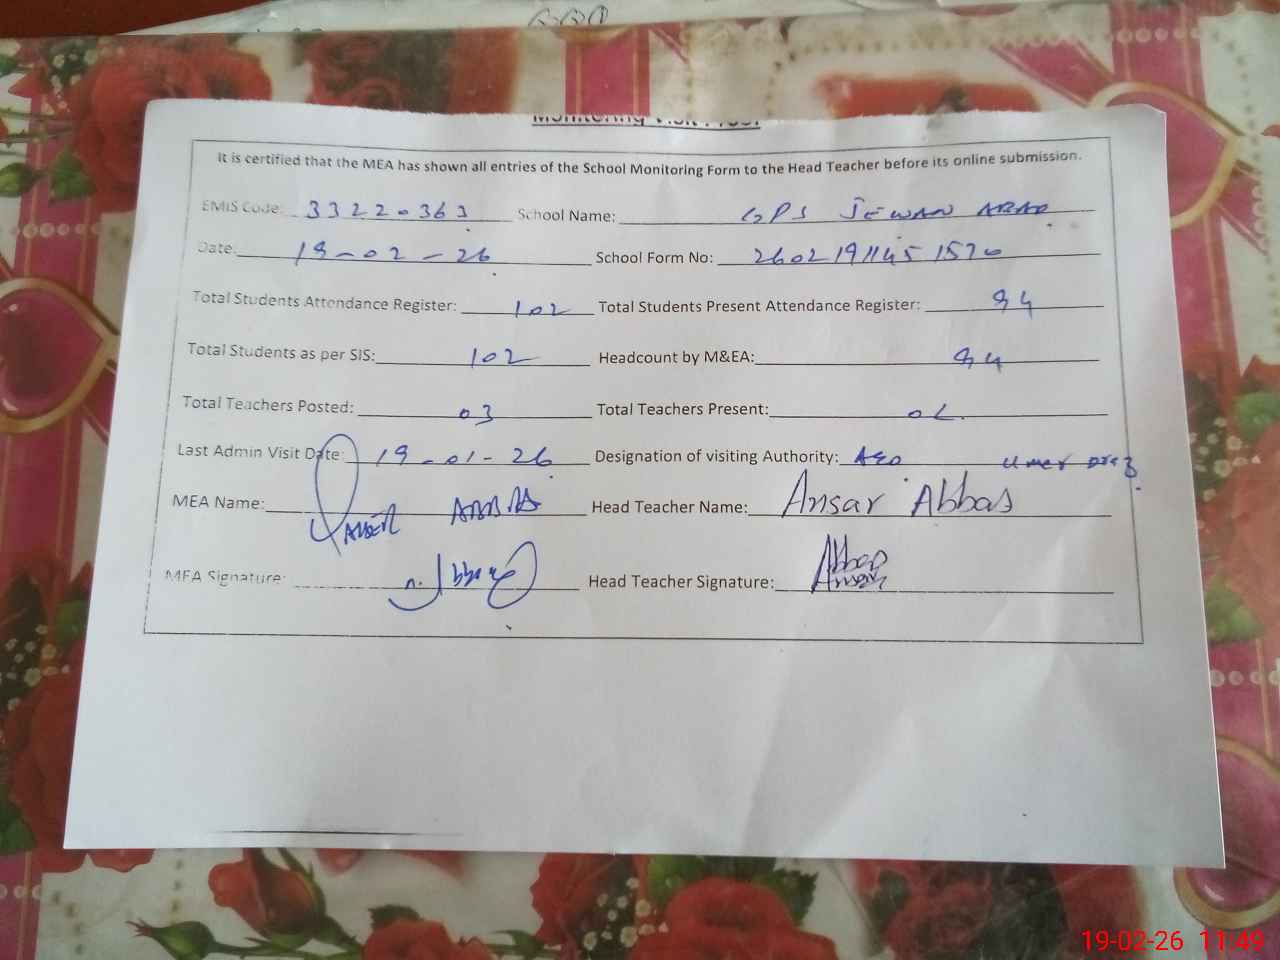 Monitoring Visit Proof
It is certified that the MEA has shown all entries of the School Monitoring Form to the Head Teacher before its online submission.
EMIS Code: 33220363 School Name: GPS JEWAN ABAD
Date: 19-02-26 School Form No: 2602191145 1570
Total Students Attendance Register: 102 Total Students Present Attendance Register: 94
Total Students as per SIS: 102 Headcount by M&EA: 94
Total Teachers Posted: 03 Total Teachers Present: 02
Last Admin Visit Date: 19-01-26 Designation of visiting Authority: AEO Umer
MEA Name: ABBAS Head Teacher Name: Ansar Abbas
MEA Signature: Head Teacher Signature: Abbas Ansar
19-02-26 11:49